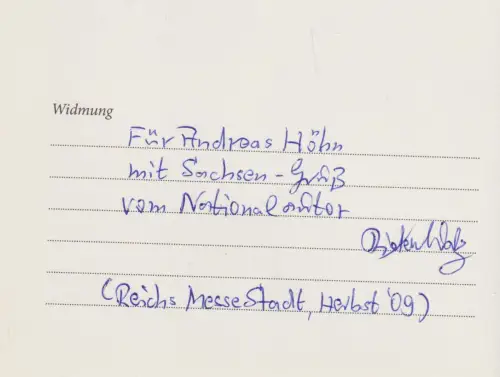 Widmung
Für Andreas Höhn
mit Sachsen-Gruß
vom Nationalautor
(ReichsMesseStadt, Herbst '09)